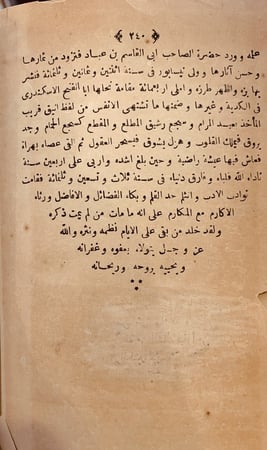 ﴿ ٢٤٠ ﴾
علمه وورد حضرة الصاحب ابى القاسم بن عباد فتزود من ثمارها
وحسن آثارها وولى نيسابور فى سنة اثنتين وثمانين وثلثمائة فنشر
بها بزه واظهر طرزه واملى اربعمائة مقامة نحلها ابا الفتح الاسكندرى
فى الكدية وغيرها وضمنها ما تشتهى الانفس من لفظ انيق قريب
المأخذ بعيد المرام وسجع رشيق المطلع والمقطع كسجع الحمام وجد
يروق فيملك القلوب وهزل يشوق فيسحر العقول ثم القى عصاه بهراة
فعاش فيها عيشة راضية وحين بلغ اشده واربى على اربعين سنة
ناداه الله فلباه وفارق دنياه فى سنة ثلاث وتسعين وثلثمائة فقامت
نوادب الادب وانثلم حد القلم وبكاه الفضائل والافاضل ورثاه
الاكارم مع المكارم على انه ما مات من لم يمت ذكره
ولقد خلد من بقى على الايام نظمه ونثره والله
عز وجل يتولاه بعفوه وغفرانه
ويحييه بروحه وريحانه